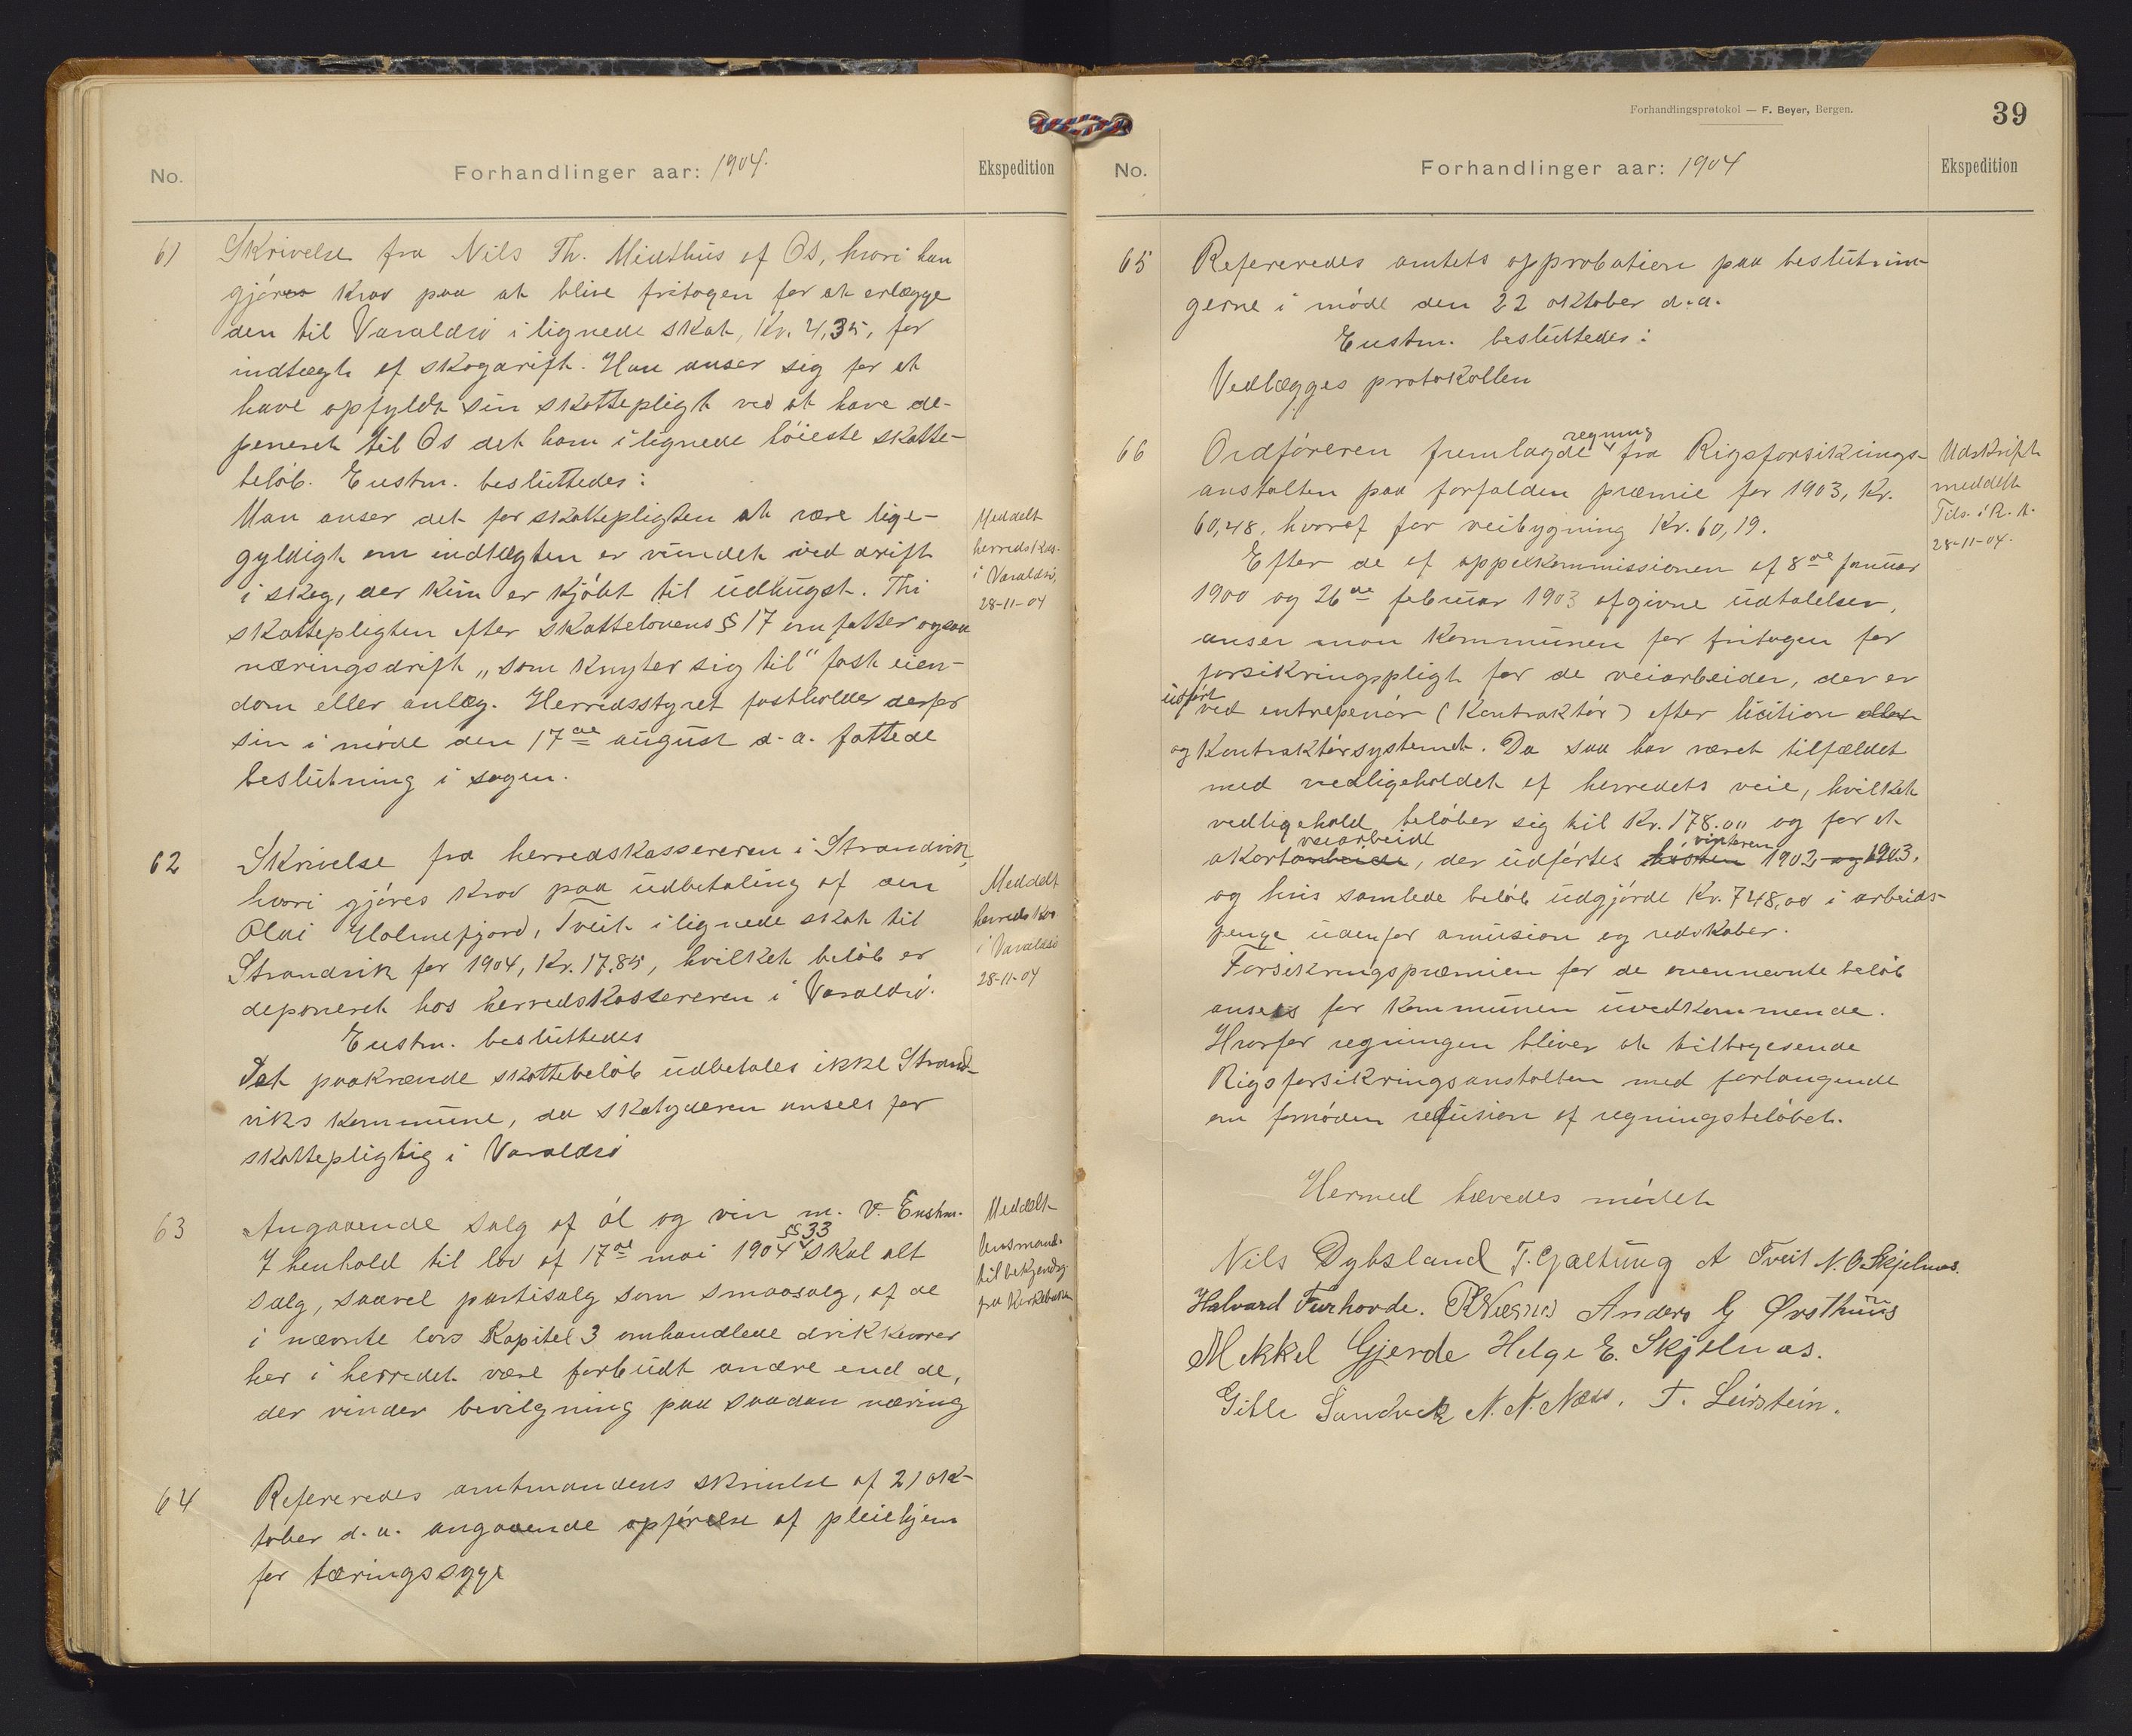 No.
Forhandlinger aar: 1904.
Ekspedition
61
Skrivelse fra Nils Th. Midthus af Os, hvori han
gjøres krav paa at blive fritagen for at erlægge
den til Varaldsø ilignede skat, Kr. 4,35, for
indtægt af skogdrift. Han anser sig for at
have opfyldt sin skattepligt ved at have de-
poneret til Os det ham ilignede høieste skatte-
beløb. Enstm. besluttedes:
Man anser det for skattepligten at være lige-
gyldigt om indtægten er vundet ved drift
i skog, der kun er kjøbt til udhugst. Thi
skattepligten efter skattelovens § 17 omfatter ogsaa
næringsdrift „som knyter sig til" fast eien-
dom eller anlæg. Herredsstyret fastholder derfor
sin i møde den 17de august d. a. fattede
beslutning i sagen.
Meddelt
herredskas.
i Varaldsø,
28-11-04
62
Skrivelse fra herredskassereren i Strandvik,
hvori gjøres krav paa udbetaling af den
Olai Holmefjord, Tveit ilignede skat til
Strandvik for 1904, Kr. 17,85, hvilket beløb er
deponeret hos herredskassereren i Varaldsø.
Enstm. besluttedes
Det paakrævede skattebeløb udbetales ikke Strand-
viks kommune, da skatyderen ansees for
skattepligtig i Varaldsø
Meddelt
herredskas
i Varaldsø
28-11-04
63
Angaaende salg af øl og vin m. v. Enstm.
I henhold til lov af 17de mai 1904 §§ 33 skal alt
salg, saavel partisalg som smaasalg, af de
i nævnte lovs Kapitel 3 omhandlede drikkevarer
her i herredet være forbudt andre end de,
der vinder bevilgning paa saadan næring
Meddelt
lensmand.
til bekjendtg
fra Kirkebakken
64
Refereredes amtmandens skrivelse af 21 ok-
tober d. a. angaaende opførelse af pleiehjem
for tæringssyge
Forhandlingsprotokol — F. Beyer, Bergen.
39
No.
Forhandlinger aar: 1904
Ekspedition
65
Refereredes amtets approbation paa beslutnin-
gerne i møde den 22 oktober d. a.
Enstm. besluttedes:
Vedlægges protokollen
66
Ordføreren fremlagde regning fra Rigsforsikrings-
anstalten paa forfalden præmie for 1903, Kr.
60,48, hvoraf for veibygning Kr. 60,19.
Efter de af appelkommissionen af 8de januar
1900 og 26de februar 1903 afgivne udtalelser,
anser man kommunen for fritagen for
forsikringspligt for de veiarbeider, der er
udført ved entrepenør (kontraktør) efter licition eller
og kontraktørsystemet. Da saa har været tilfældet
med vedligeholdet af herredets veie, hvilket
vedligehold beløber sig til Kr. 178.00 og for et
akortarbeide veiarbeide, der udførtes høsten vinteren 1902 og 1903,
og hvis samlede beløb udgjørde Kr. 748,00 i arbeids-
penge udenfor amusion og redskaber.
Forsikringspræmien for de ovennevnte beløb
ansees for kommunen uvedkommende.
Hvorfor regningen bliver at tilbagesende
Rigsforsikringsanstalten med forlangende
om fornøden refusion af regningsbeløbet.
Udskrift
meddelt
Tils. i R. A.
28-11-04.
Hermed hævedes mødet
Nils Dybsland T. Galtung A Tveit N. O. Skjelnes.
Halvard Furhovde. Anders G Øvsthuus
Mekkel Gjerde Helge E. Skjelnæs.
Gitle Sandvik N. N. Næss. T. Leirstein.